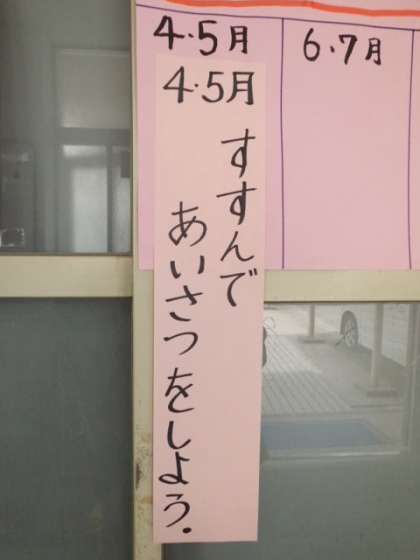 4・5月
6・7月
4・5月
すすんで
あいさつをしよう.